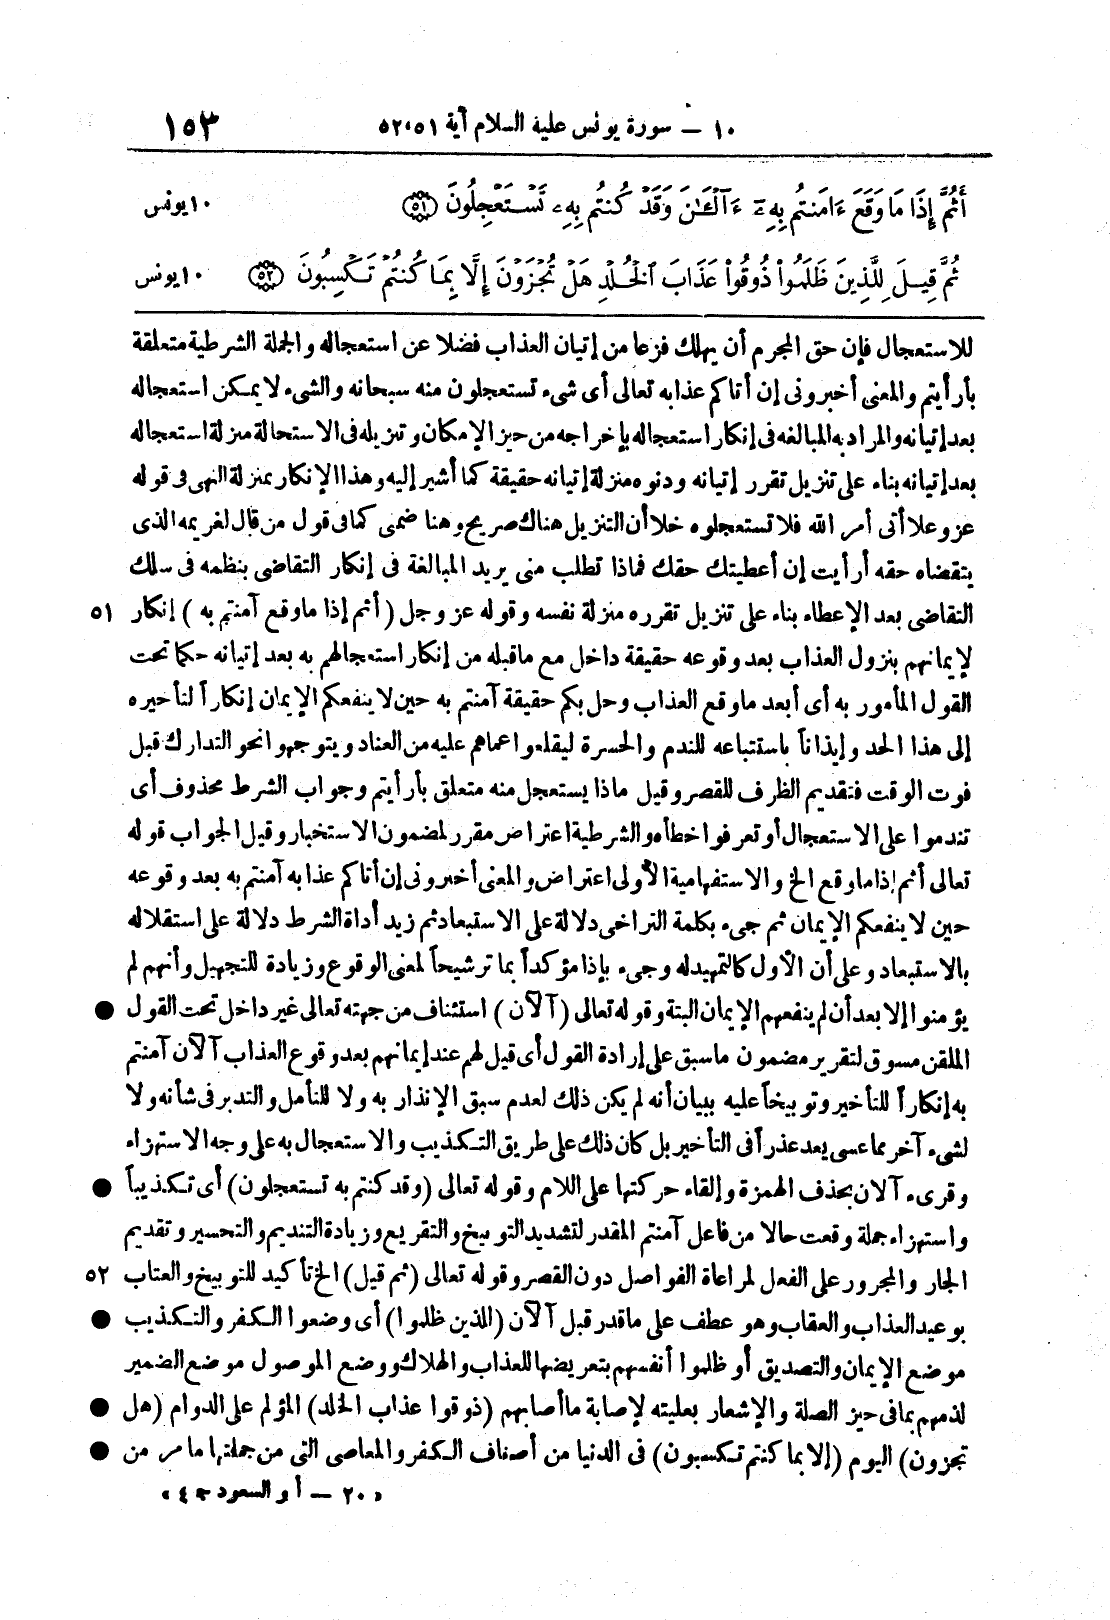 ١٠ – سورة يونس عليه السلام آية ٥٢،٥١ ١٥٣
أَثُمَّ إِذَا مَا وَقَعَ ءَامَنتُم بِهِۦٓ ءَآلْـَٰٔنَ وَقَدْ كُنتُم بِهِۦ تَسْتَعْجِلُونَ ﴿٥١﴾ ١٠ يونس
ثُمَّ قِيلَ لِلَّذِينَ ظَلَمُوا۟ ذُوقُوا۟ عَذَابَ ٱلْخُلْدِ هَلْ تُجْزَوْنَ إِلَّا بِمَا كُنتُمْ تَكْسِبُونَ ﴿٥٢﴾ ١٠ يونس
للاستعجال فإن حق المجرم أن يهلك فزعا من إتيان العذاب فضلا عن استعجاله والجملة الشرطية متعلقة
بأرأيتم والمعنى أخبرونى إن أتاكم عذابه تعالى أى شىء تستعجلون منه سبحانه والشىء لا يمكن استعجاله
بعد إتيانه والمراد به المبالغه فى إنكار استعجاله بإخراجه من حيز الإمكان وتنزيله فى الاستحالة منزلة استعجاله
بعد إتيانه بناء على تنزيل تقرر إتيانه ودنوه منزلة إتيانه حقيقة كما أشير إليه وهذا الإنكار بمنزلة النهى فى قوله
عز وعلا أتى أمر الله فلا تستعجلوه خلا أن التنزيل هناك صريح وهنا ضمنى كما فى قول من قال لغريمه الذى
يتقضاه حقه أرأيت إن أعطيتك حقك فماذا تطلب منى يريد المبالغة فى إنكار التقاضى بنظمه فى سلك
التقاضى بعد الإعطاء بناء على تنزيل تقرره منزلة نفسه وقوله عز وجل (أثم إذا ما وقع آمنتم به) إنكار ٥١
لإيمانهم بنزول العذاب بعد وقوعه حقيقة داخل مع ماقبله من إنكار استعجالهم به بعد إتيانه حكما تحت
القول المأمور به أى أبعد ما وقع العذاب وحل بكم حقيقة آمنتم به حين لا ينفعكم الإيمان إنكاراً لتأخيره
إلى هذا الحد وإيذاناً باستتباعه للندم والحسرة ليقلعوا عماهم عليه من العناد ويتوجهوا نحو التدارك قبل
فوت الوقت فتقديم الظرف للقصر وقيل ماذا يستعجل منه متعلق بأرأيتم وجواب الشرط محذوف أى
تندموا على الاستعجال أو تعرفوا خطأه والشرطية اعتراض مقرر لمضمون الاستخبار وقيل الجواب قوله
تعالى أثم إذا ما وقع الخ والاستفهامية الأولى اعتراض والمعنى أخبرونى إن أتاكم عذابه آمنتم به بعد وقوعه
حين لا ينفعكم الإيمان ثم جىء بكلمة التراخى دلالة على الاستبعاد ثم زيد أداة الشرط دلالة على استقلاله
بالاستبعاد وعلى أن الأول كالتمهيد له وجىء بإذا مؤكداً بما ترشيحاً لمعنى الوقوع وزيادة للتجهيل وأنهم لم
يؤمنوا إلا بعد أن لم ينفعهم الإيمان البتة وقوله تعالى (آلآن) استئناف من جهته تعالى غير داخل تحت القول ●
الملقن مسوق لتقرير مضمون ماسبق على إرادة القول أى قيل لهم عند إيمانهم بعد وقوع العذاب آلآن آمنتم
به إنكاراً للتأخير وتوبيخاً عليه ببيان أنه لم يكن ذلك لعدم سبق الإنذار به ولا للتأمل والتدبر فى شأنه ولا
لشىء آخر مما عسى يعد عذراً فى التأخير بل كان ذلك على طريق التكذيب والاستعجال به على وجه الاستهزاء
وقرىء آلان بحذف الهمزة وإلقاء حركتها على اللام وقوله تعالى (وقد كنتم به تستعجلون) أى تكذيباً ●
واستهزاء جملة وقعت حالا من فاعل آمنتم المقدر لتشديد التوبيخ والتقريع وزيادة التنديم والتحسير وتقديم
الجار والمجرور على الفعل لمراعاة الفواصل دون القصر وقوله تعالى (ثم قيل) الخ تأكيد للتوبيخ والعتاب ٥٢
بوعيد العذاب والعقاب وهو عطف على ماقدر قبل آلآن (للذين ظلموا) أى وضعوا الكفر والتكذيب ●
موضع الإيمان والتصديق أو ظلموا أنفسهم بتعريضها للعذاب والهلاك ووضع الموصول موضع الضمير
لذمهم بما فى حيز الصلة والإشعار بعليته لإصابة ما أصابهم (ذوقوا عذاب الخلد) المؤلم على الدوام (هل ●
تجزون) اليوم (إلا بما كنتم تكسبون) فى الدنيا من أصناف الكفر والمعاصى التى من جملتها ما مر من ●
« ٢٠ – أبو السعود ج ٤ »